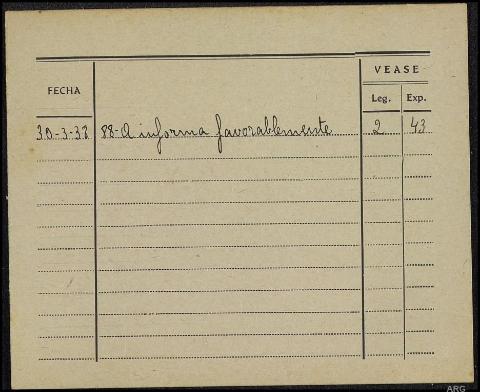 VEASE
FECHA
Leg. Exp.
30-3-38 88-A informa favorablemente 2 43
ARG